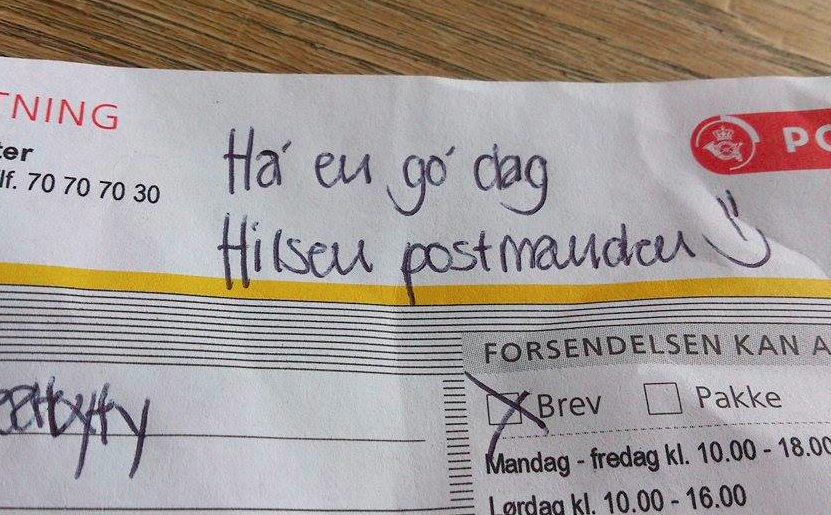 TNING
ter
lf. 70 70 70 30
Ha' en go' dag
Hilsen postmanden
PO
FORSENDELSEN KAN A
Brev
Pakke
Mandag - fredag kl. 10.00 - 18.00
Lørdag kl. 10.00 - 16.00